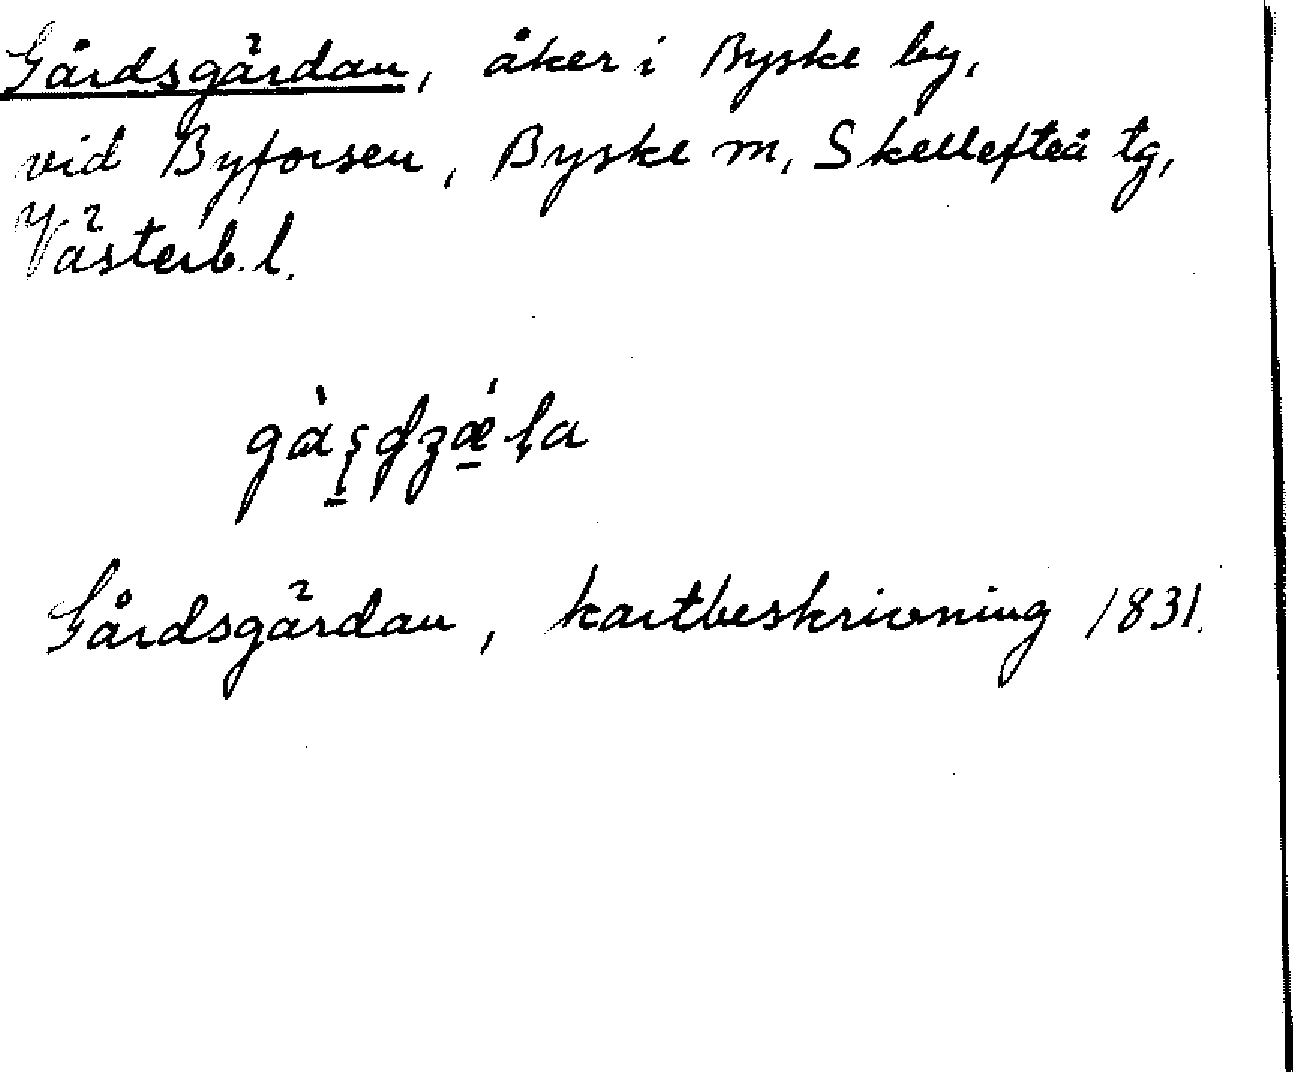 Gårdsgärdan, åker i Byske by,
vid Byforsen, Byske m, Skellefteå tg,
Västerb. l.
Gårdsgärdan, kartbeskrivning 1831.